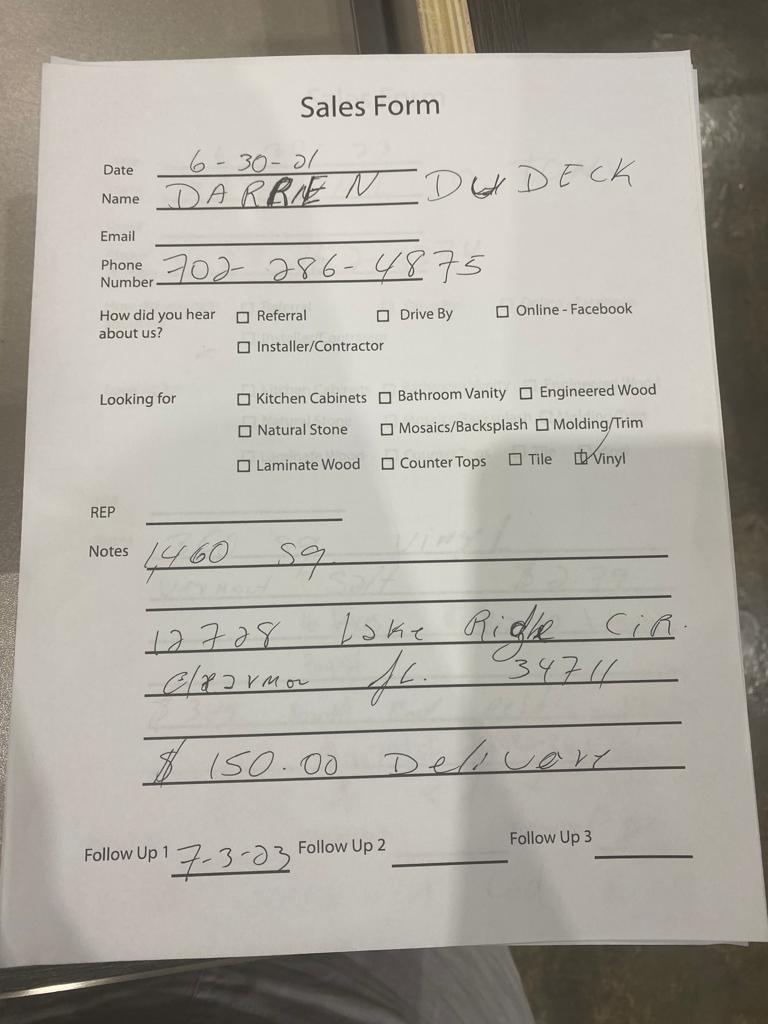 Sales Form
Date 6-30-21
Name DARREN DUDECK
Email
Phone Number 702-286-4875
How did you hear about us? ☐ Referral ☐ Drive By ☐ Online - Facebook
☐ Installer/Contractor
Looking for ☐ Kitchen Cabinets ☐ Bathroom Vanity ☐ Engineered Wood
☐ Natural Stone ☐ Mosaics/Backsplash ☐ Molding/Trim
☐ Laminate Wood ☐ Counter Tops ☐ Tile ☑ Vinyl
REP
Notes 1,460 sq
12728 Lake Ridge CiR.
Clearmon fL. 34711
$ 150.00 Delivery
Follow Up 1 7-3-23 Follow Up 2 Follow Up 3